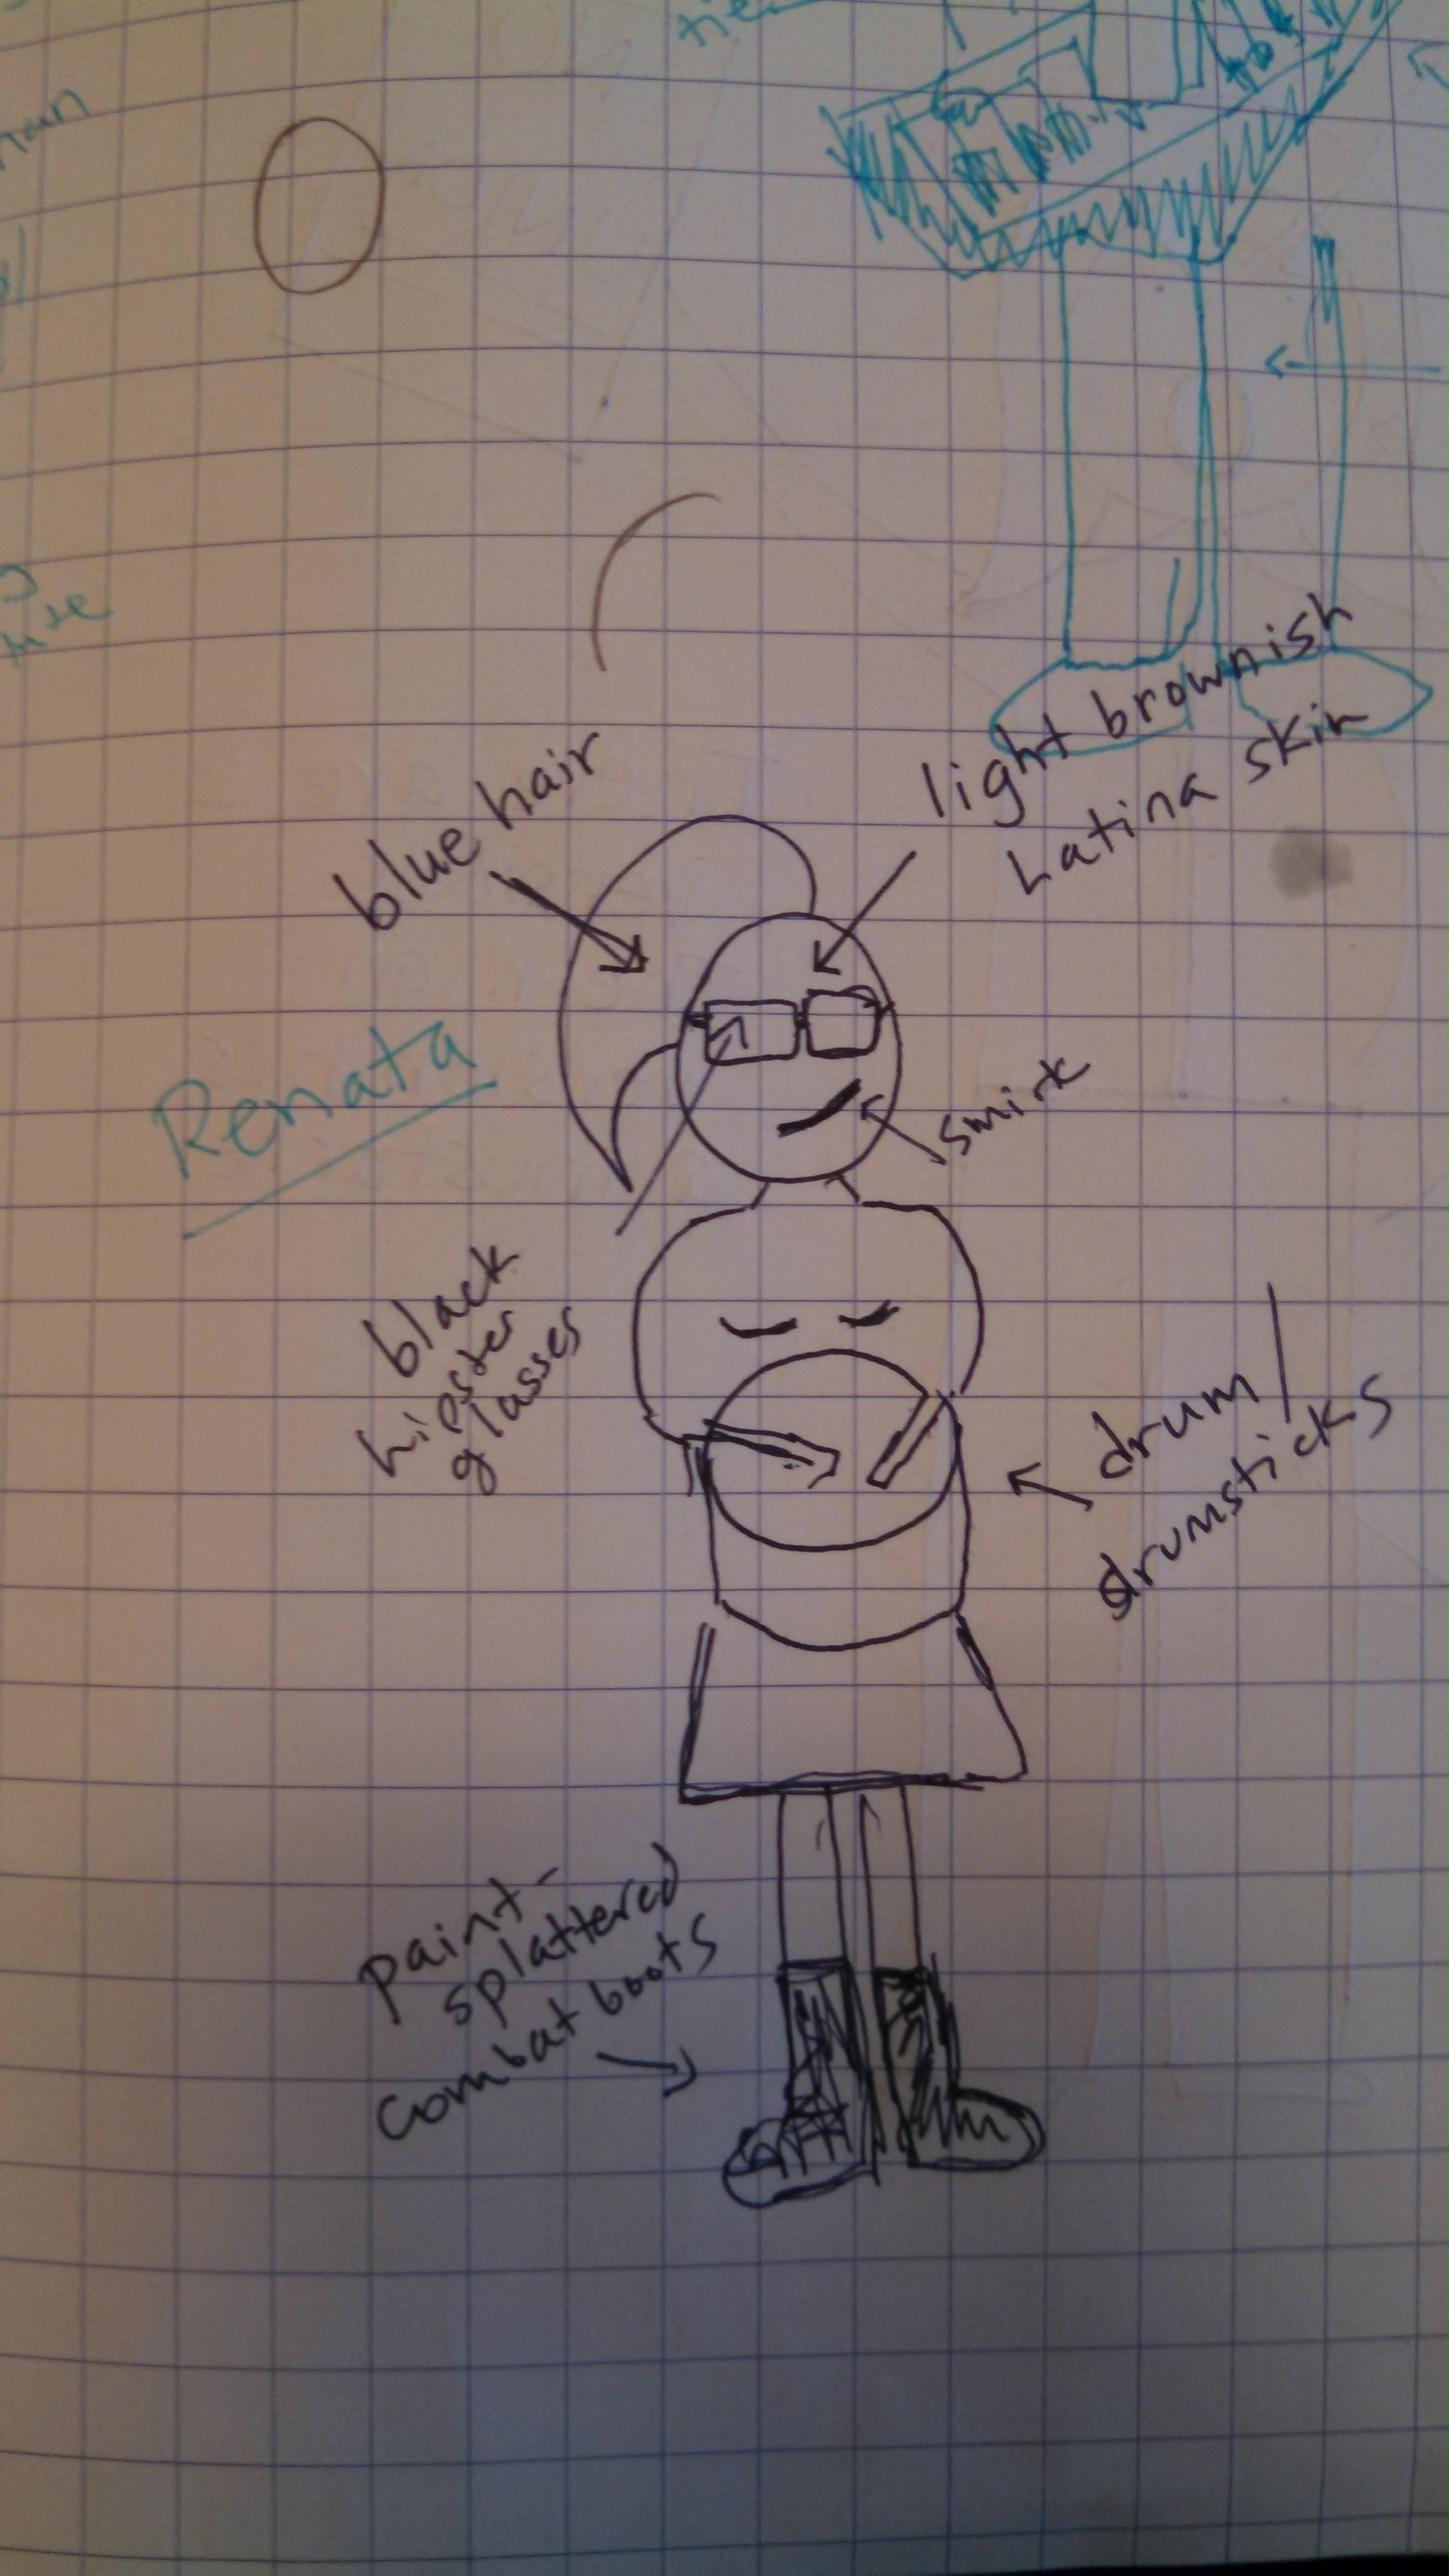 blue hair
light brownish
Latina skin
Renata
smirk
black
hipster
glasses
drum/
drumsticks
paint-
splattered
combat boots